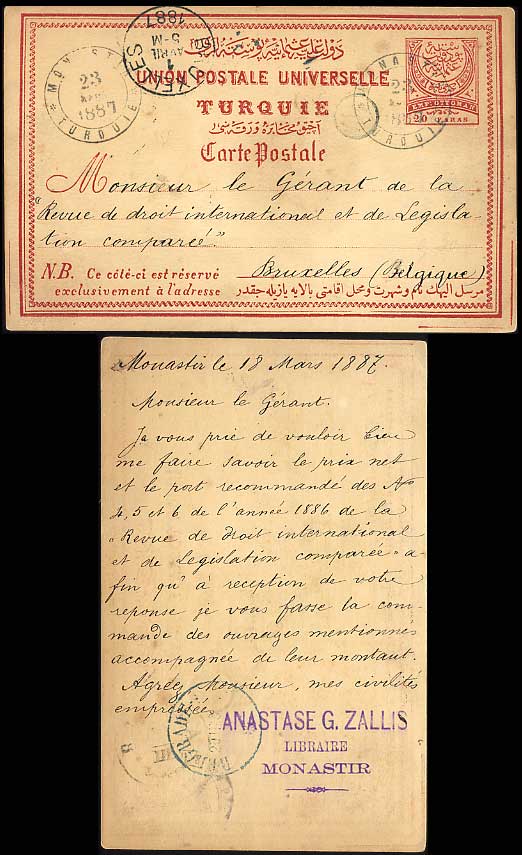 دولت علیهٔ عثمانیه پوسته لری
UNION POSTALE UNIVERSELLE
TURQUIE
Carte Postale
20 PARAS
MONASTIR
23
1887
TURQUIE
BRUXELLES
1
AVRIL
5-M
1887
Monsieur le Gérant de la
"Revue de droit international et de Legisla-
tion comparée."
Bruxelles (Belgique)
N.B. Ce côté-ci est réservé
exclusivement à l'adresse
Monastir le 18 Mars 1887.
Monsieur le Gérant.
Je vous prie de vouloir bien
me faire savoir le prix net
et le port recommandé des Nos
4, 5 et 6 de l'année 1886 de la
"Revue de droit international
et de Legislation comparée" a-
fin qu' à reception de votre
reponse je vous fasse la com-
mande des ouvrages mentionnés
accompagnée de leur montant.
Agréez Monsieur, mes civilités
empressées
ANASTASE G. ZALLIS
LIBRAIRE
MONASTIR